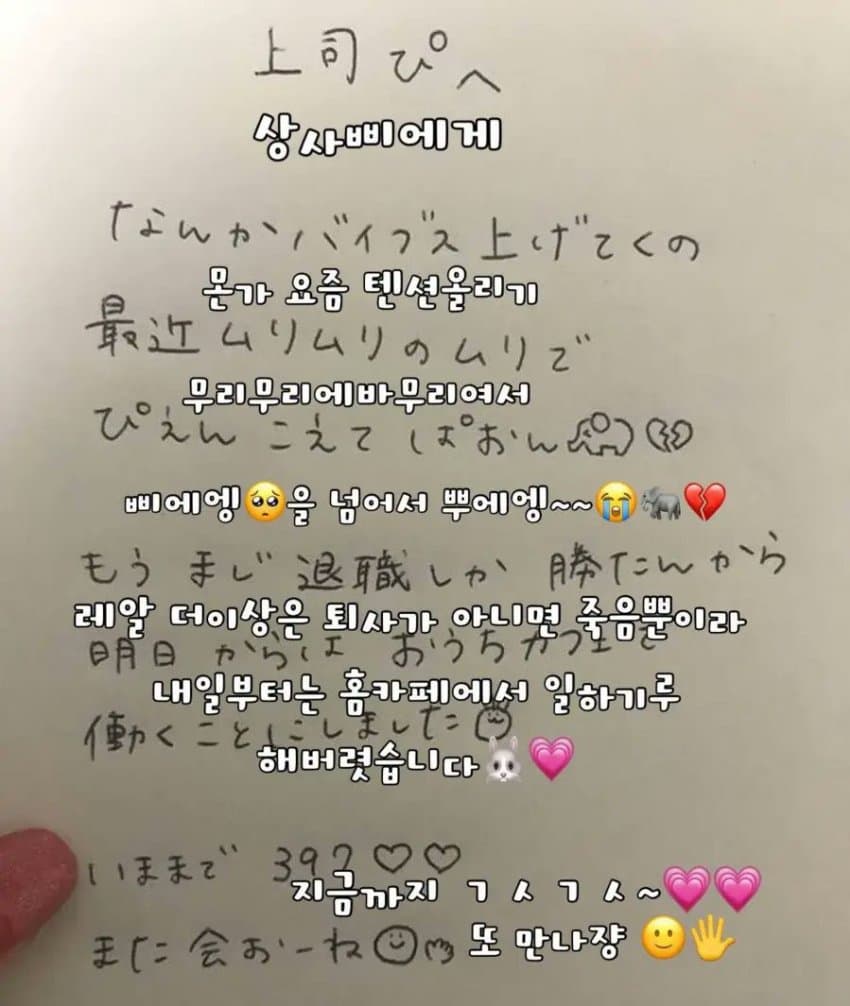 上司ぴへ
상사삐에게
なんかバイブス上げてくの
몬가 요즘 텐션올리기
最近ムリムリのムリで
무리무리에바무리여서
ぴえんこえてぱおん🐘💔
삐에엥🥺을 넘어서 뿌에엥~~😭🐘💔
もうまじ退職しか勝たんから
레알 더이상은 퇴사가 아니면 죽음뿐이라
明日からはおうちカフェで
내일부터는 홈카페에서 일하기루
働くことにしました
해버렷습니다🐰💗
いままで 392♡♡
지금까지 ㄱㅅㄱㅅ~💗💗
また会おーね
또 만나쟝 🙂🖐